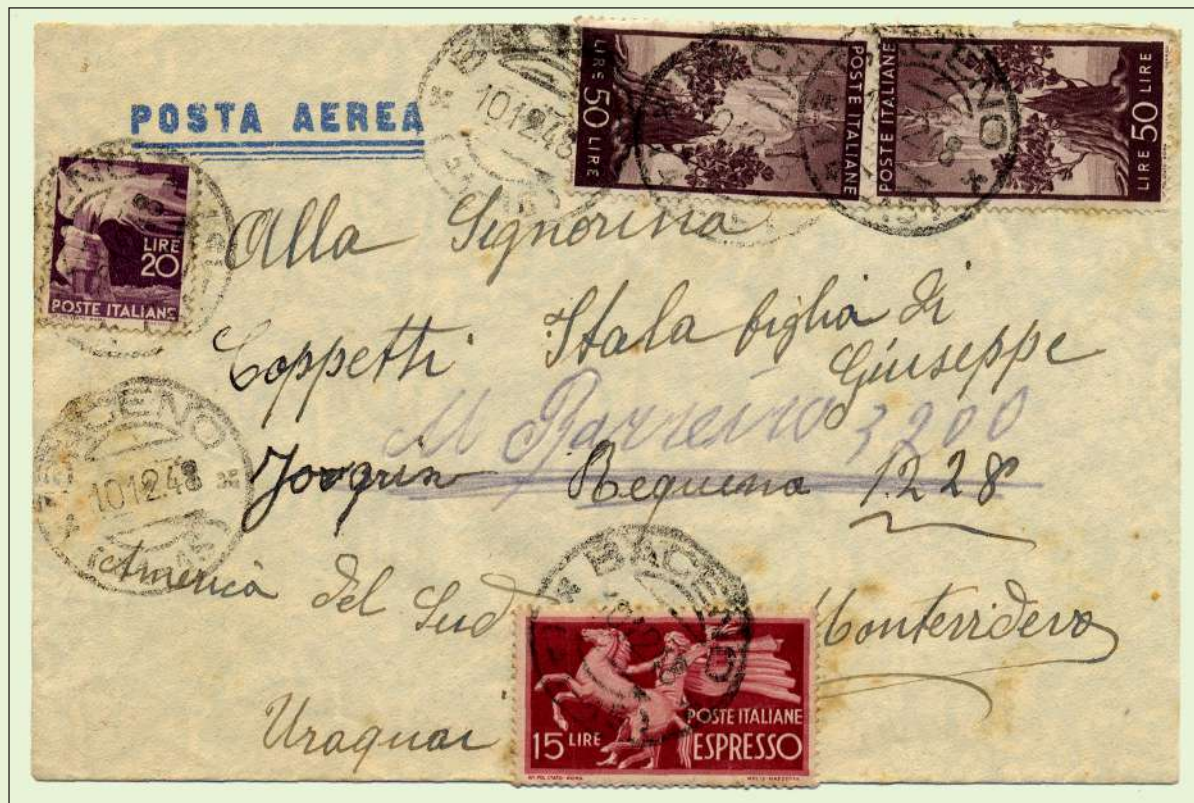 POSTA AEREA
LIRE 50 LIRE
POSTE ITALIANE
POSTE ITALIANE
LIRE 50 LIRE
BACENO
10.12.48
LIRE
20
POSTE ITALIANE
Alla Signorina
Coppetti Itala figlia di
Giuseppe
M Barreiro 3200
Joaquin Requena 1228
BACENO
10.12.48
America del Sud Montevidevo
BACENO
Uraguai
15 LIRE
POSTE ITALIANE
ESPRESSO